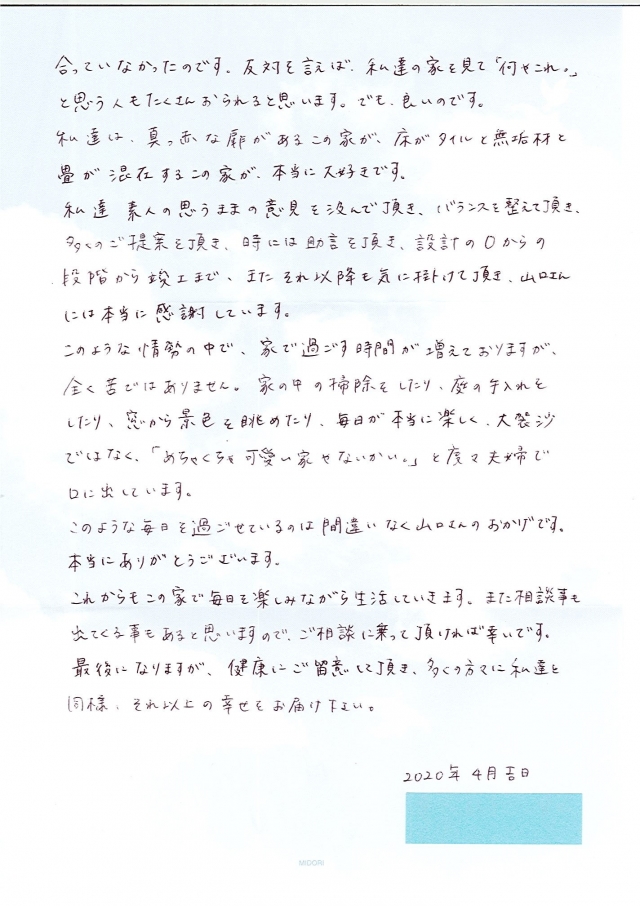 合っていなかったのです。反対を言えば、私達の家を見て「何やこれ。」
と思う人もたくさんおられると思います。でも、良いのです。
私達は、真っ赤な扉があるこの家が、床がタイルと無垢材と
畳が混在するこの家が、本当に大好きです。
私達 素人の思うままの意見を汲んで頂き、バランスを整えて頂き、
多くのご提案を頂き、時には助言を頂き、設計の0からの
段階から竣工まで、またそれ以降も気に掛けて頂き、山口さん
には本当に感謝しています。
このような情勢の中で、家で過ごす時間が増えておりますが、
全く苦ではありません。家の中の掃除をしたり、庭の手入れを
したり、窓から景色を眺めたり、毎日が本当に楽しく、大袈沙
ではなく、「めちゃくちゃ可愛い家やないかい。」と度々夫婦で
口に出しています。
このような毎日を過ごせているのは間違いなく山口さんのおかげです。
本当にありがとうございます。
これからもこの家で毎日を楽しみながら生活していきます。また相談事も
出てくる事もあると思いますので、ご相談に乗って頂ければ幸いです。
最後になりますが、健康にご留意して頂き、多くの方々に私達と
同様、それ以上の幸せをお届け下さい。
2020年4月吉日
MIDORI